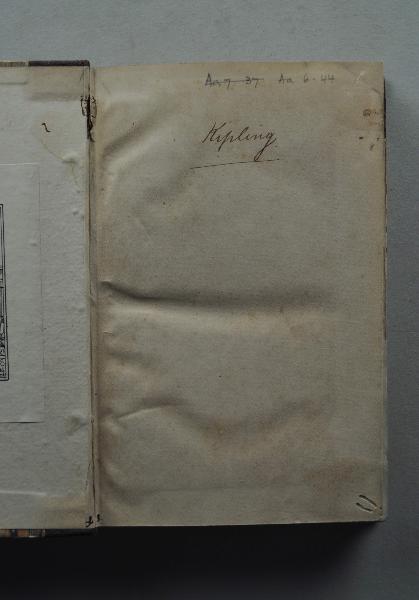 Aa 7-37 Aa 6-44
Kipling